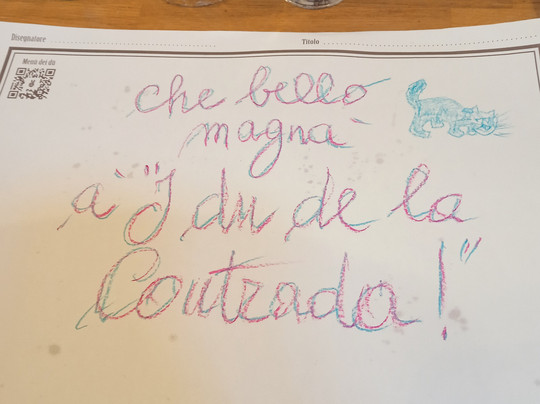 Disegnatore
Titolo
Menù dei dü
che bello
magnà
a "I du de la
Contrada!"